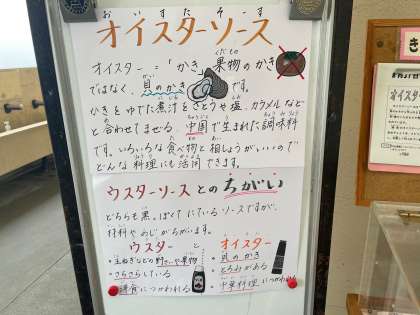 おいすたそーす
オイスターソース
オイスター='かき' 果物のかき
くだもの
ではなく、貝のかき です。
かい
かきをゆでた煮汁をさとうや塩、カラメルなど
と合わせてまぜる、中国で生まれた調味料
です。いろいろな食べ物と相しょうがいいので
どんな料理にも活用できます。
ウスターソースとのちがい
どちらも黒っぽくてにているソースですが、
材料やあじがちがいます。
ウスター と オイスター
・玉ねぎなどの野さいや果物
・さらさらしている
・洋食につかわれる
・貝のかき
・とろみがある
・中華料理につかわれる
き